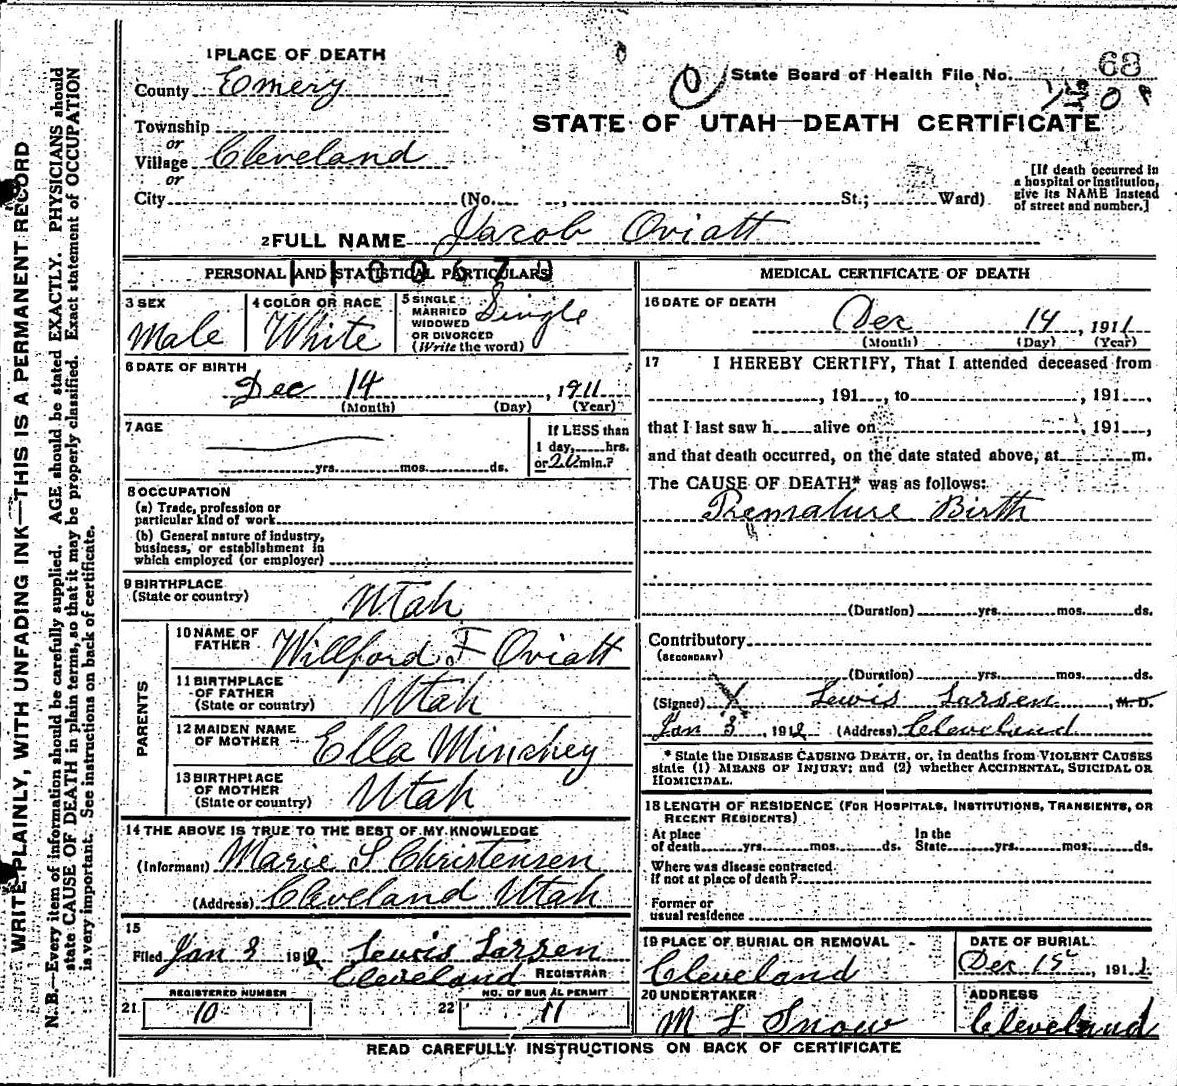 WRITE PLAINLY, WITH UNFADING INK—THIS IS A PERMANENT RECORD
N. B.—Every item of information should be carefully supplied. AGE should be stated EXACTLY. PHYSICIANS should
state CAUSE OF DEATH in plain terms, so that it may be properly classified. Exact statement of OCCUPATION
is very important. See instructions on back of certificate.
1 PLACE OF DEATH
County Emery
Township
or
Village Cleveland
or
City (No. , St.; Ward)
State Board of Health File No. 68
STATE OF UTAH—DEATH CERTIFICATE
[If death occurred in
a hospital or institution,
give its NAME instead
of street and number.]
2 FULL NAME Jacob Oviatt
PERSONAL AND STATISTICAL PARTICULARS
3 SEX
Male
4 COLOR OR RACE
White
5 SINGLE
MARRIED
WIDOWED
OR DIVORCED
(Write the word)
Single
6 DATE OF BIRTH
Dec 14, 1911
(Month) (Day) (Year)
7 AGE
yrs. mos. ds.
If LESS than
1 day, hrs.
or 20 min.?
8 OCCUPATION
(a) Trade, profession or
particular kind of work
(b) General nature of industry,
business, or establishment in
which employed (or employer)
9 BIRTHPLACE
(State or country)
Utah
PARENTS
10 NAME OF
FATHER
Willford F Oviatt
11 BIRTHPLACE
OF FATHER
(State or country)
Utah
12 MAIDEN NAME
OF MOTHER
Ella Minchey
13 BIRTHPLACE
OF MOTHER
(State or country)
Utah
14 THE ABOVE IS TRUE TO THE BEST OF MY KNOWLEDGE
(Informant) Marie S Christensen
(Address) Cleveland Utah
15
Filed Jan 3 1912 Lewis Larsen
Cleveland REGISTRAR
REGISTERED NUMBER
21 10
NO. OF BURIAL PERMIT
22 11
MEDICAL CERTIFICATE OF DEATH
16 DATE OF DEATH
Dec 14, 1911
(Month) (Day) (Year)
17 I HEREBY CERTIFY, That I attended deceased from
, 191 , to , 191 ,
that I last saw h alive on , 191 ,
and that death occurred, on the date stated above, at m.
The CAUSE OF DEATH* was as follows:
Premature Birth
(Duration) yrs. mos. ds.
Contributory
(SECONDARY)
(Duration) yrs. mos. ds.
(Signed) Lewis Larsen, M. D.
Jan 3, 1912 (Address) Cleveland
* State the DISEASE CAUSING DEATH, or, in deaths from VIOLENT CAUSES
state (1) MEANS OF INJURY; and (2) whether ACCIDENTAL, SUICIDAL OR
HOMICIDAL.
18 LENGTH OF RESIDENCE (FOR HOSPITALS, INSTITUTIONS, TRANSIENTS, OR
RECENT RESIDENTS)
At place
of death yrs. mos. ds.
In the
State yrs. mos. ds.
Where was disease contracted
if not at place of death?
Former or
usual residence
19 PLACE OF BURIAL OR REMOVAL
Cleveland
DATE OF BURIAL
Dec 15, 1911
20 UNDERTAKER
M L Snow
ADDRESS
Cleveland
READ CAREFULLY INSTRUCTIONS ON BACK OF CERTIFICATE